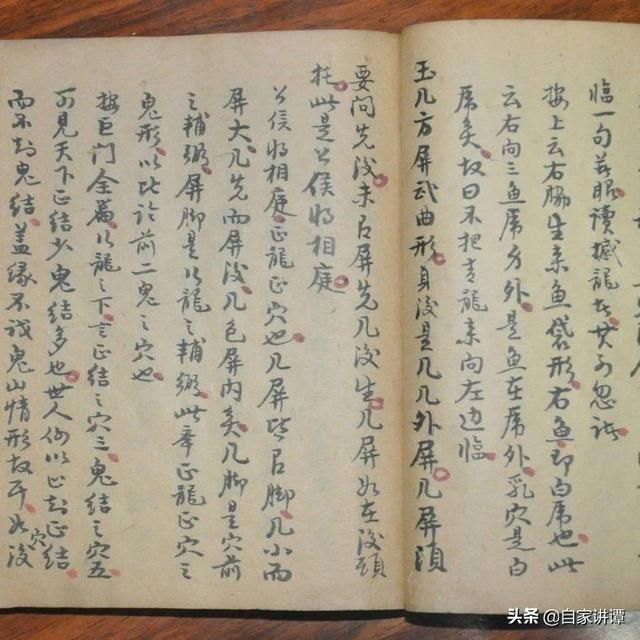 临一句着眼讀撼龍者其可忽諸
按上云右脇生来魚袋形右魚即白虎也此
云右向三魚虎方外是魚在虎外乳穴是白
虎矣故曰不把青龍来向左边臨
玉几方屏武曲形身後是几几外屏几屏須
要问先後未有屏先几後生几屏如在後頭
托此是公侯将相庭
公侯将相庭正龍正穴也几屏皆有脚几小而
屏大几先而屏後几包屏内矣几脚是穴前
之輔弼屏脚是行龍之輔弼此正龍正穴之
鬼形以比於前二鬼之穴也
按巨門全篇行龍之下言正結之穴三鬼結之穴五
可見天下正結少鬼結多也世人何以正結穴
而不鬼結盖缘不識鬼山情形故耳如後
头条 @自家讲谭